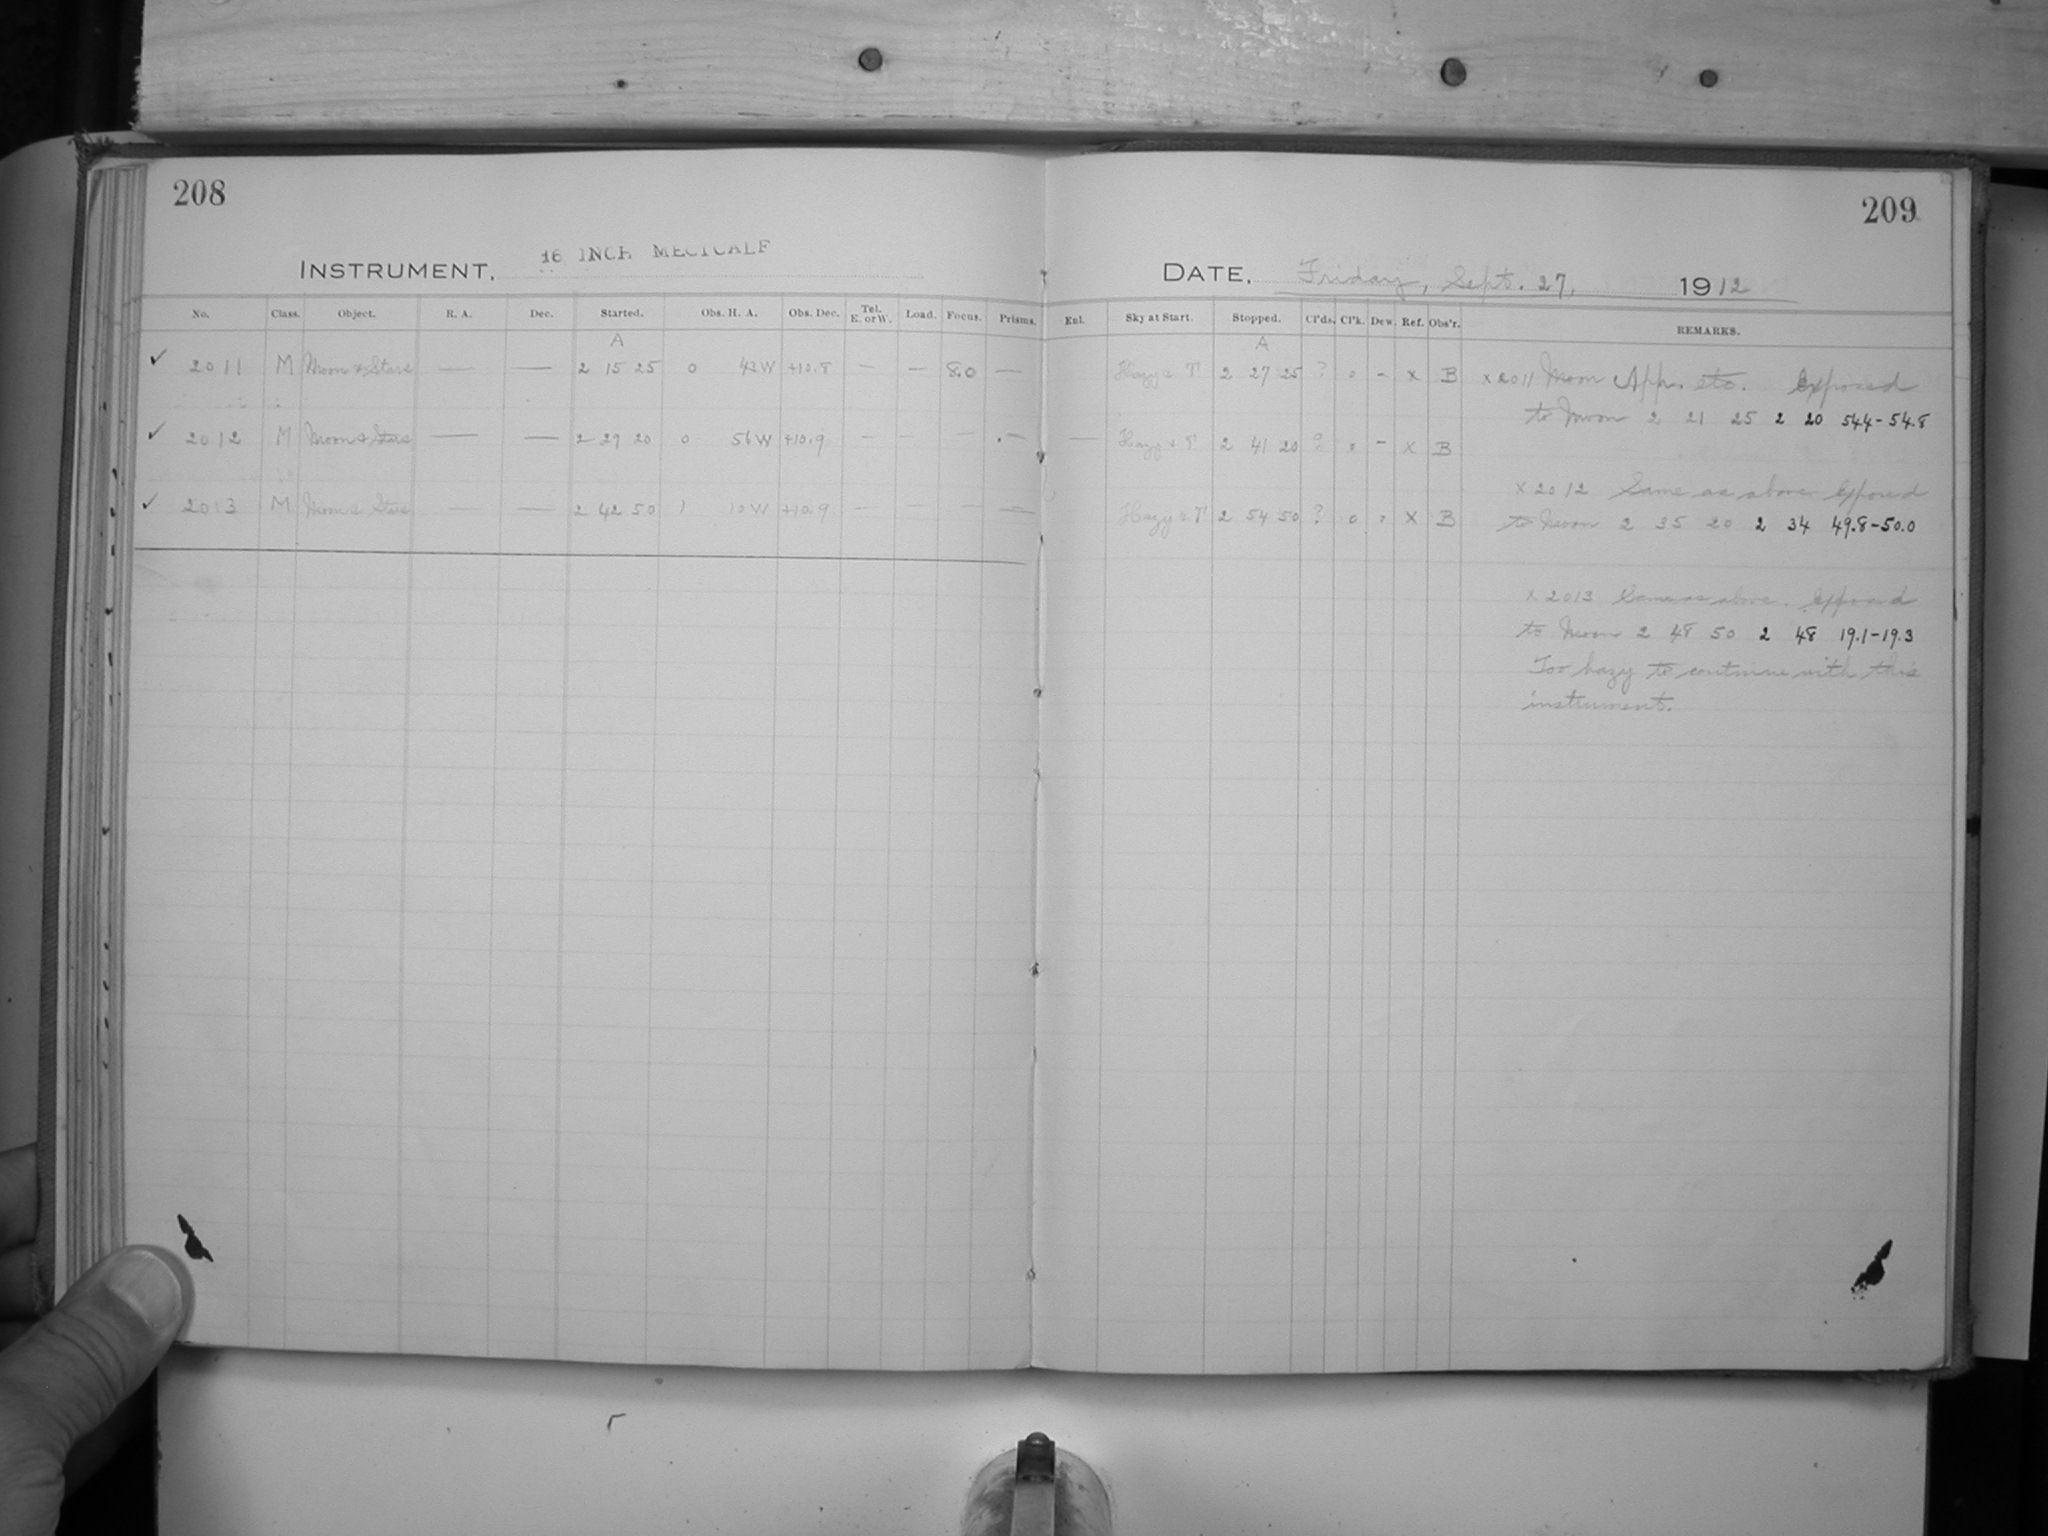 208
209
INSTRUMENT, 16 INCH METCALF
DATE, Friday, Sept. 27, 1912
No. Class. Object. R. A. Dec. Started. Obs. H. A. Obs. Dec. Tel. E. or W. Load. Focus. Prisms. Enl. Sky at Start. Stopped. Cl'ds. Cl'k. Dew. Ref. Obs'r. REMARKS.
A A
✓ 2011 M Moon & Stars — — 2 15 25 0 43 W +10.8 — — 8.0 — Hazy & T 2 27 25 ? 0 – x B x 2011 Moon App. etc. Exposed
to Moon 2 21 25 2 20 54.4–54.8
✓ 2012 M Moon & Stars — — 2 29 20 0 56 W +10.9 — — — — — Hazy & T 2 41 20 ? 0 – x B
x 2012 Same as above Exposed
to Moon 2 35 20 2 34 49.8–50.0
✓ 2013 M Moon & Stars — — 2 42 50 1 10 W +10.9 — — — — Hazy & T 2 54 50 ? 0 - x B
x 2013 Same as above. Exposed
to Moon 2 48 50 2 48 19.1–19.3
Too hazy to continue with this
instrument.